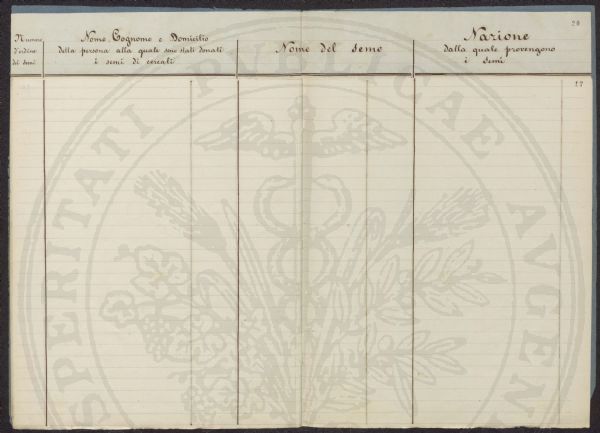 Numero
d'ordine
dei semi
Nome, Cognome e Domicilio
della persona alla quale sono stati donati
i semi di cereali
Nome del Seme
Nazione
dalla quale provengono
i semi
28
27
PROSPERITATI PUBLICAE AUGENDAE